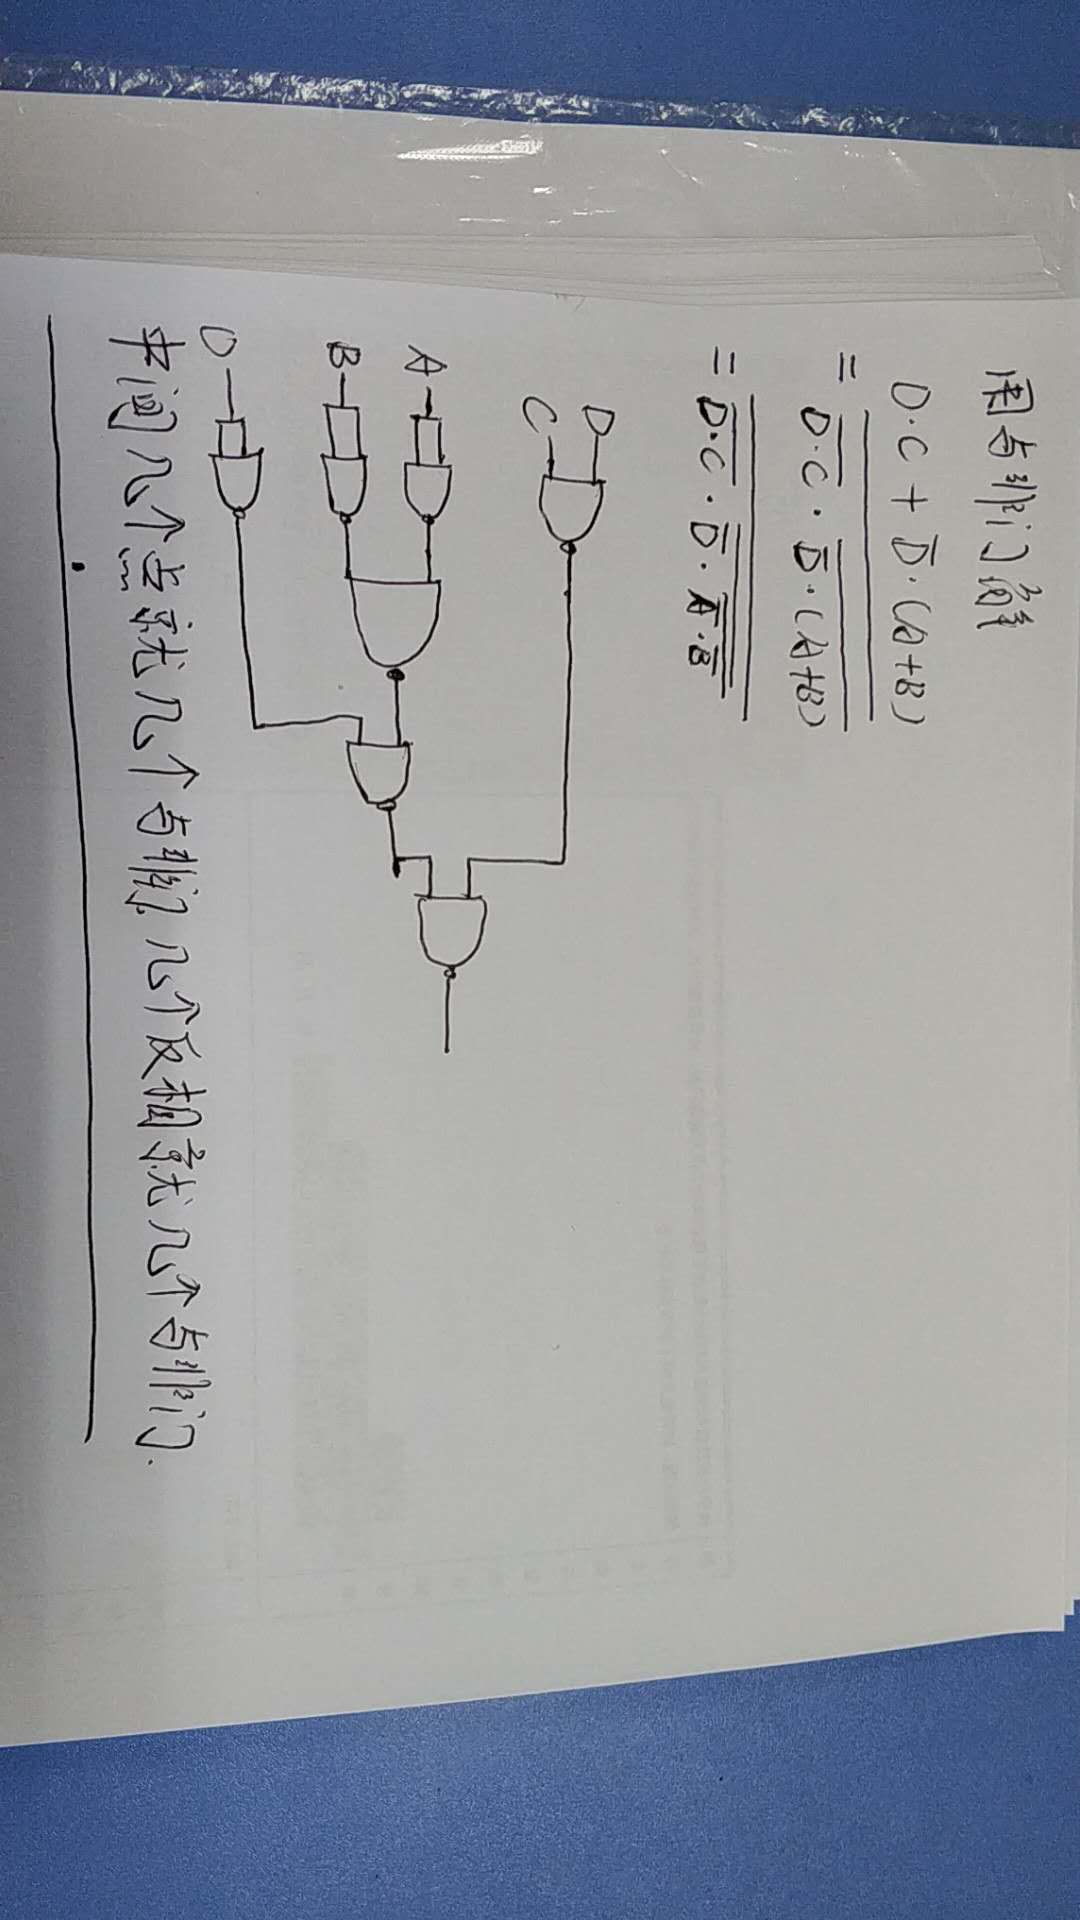 用与非门解
D·C + D̅·(A+B)
= \overline{\overline{D·C} · \overline{D̅·(A+B)}}
= \overline{\overline{D·C} · \overline{D̅·\overline{A̅·B̅}}}
D
C
A
B
D
中间几个点就几个与非门,几个反相就几个与非门.